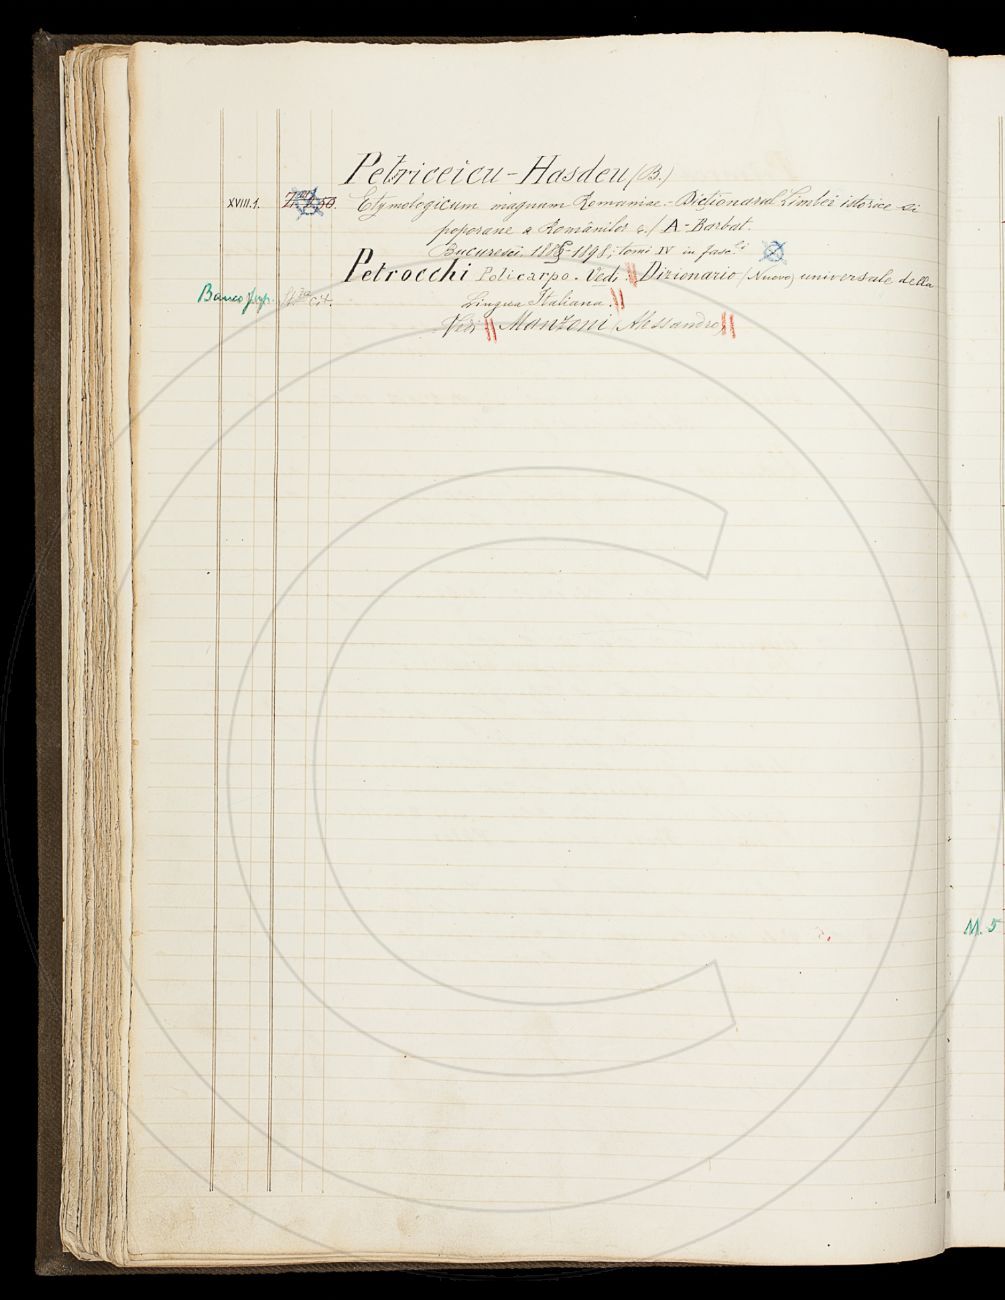 Petriceicu-Hasdeu (B.)
XVIII.1. Etymologicum magnum Romaniae.- Dicţionarul Limbei istorice si
poporane a Românilor c./ A-Barbat.
Bucuresci, 1898; tomi IV in fasc.i
Petrocchi Policarpo. Vedi Dizionario (Nuovo) universale della
Banco cit. Lingua Italiana.
Vedi Manzoni (Alessandro)
M. 5